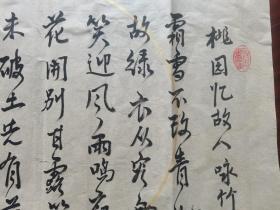 桃园忆故人咏竹
霜雪不改青
故绿衣从容
笑迎风雨鸣
花开别甘露
未破土先有